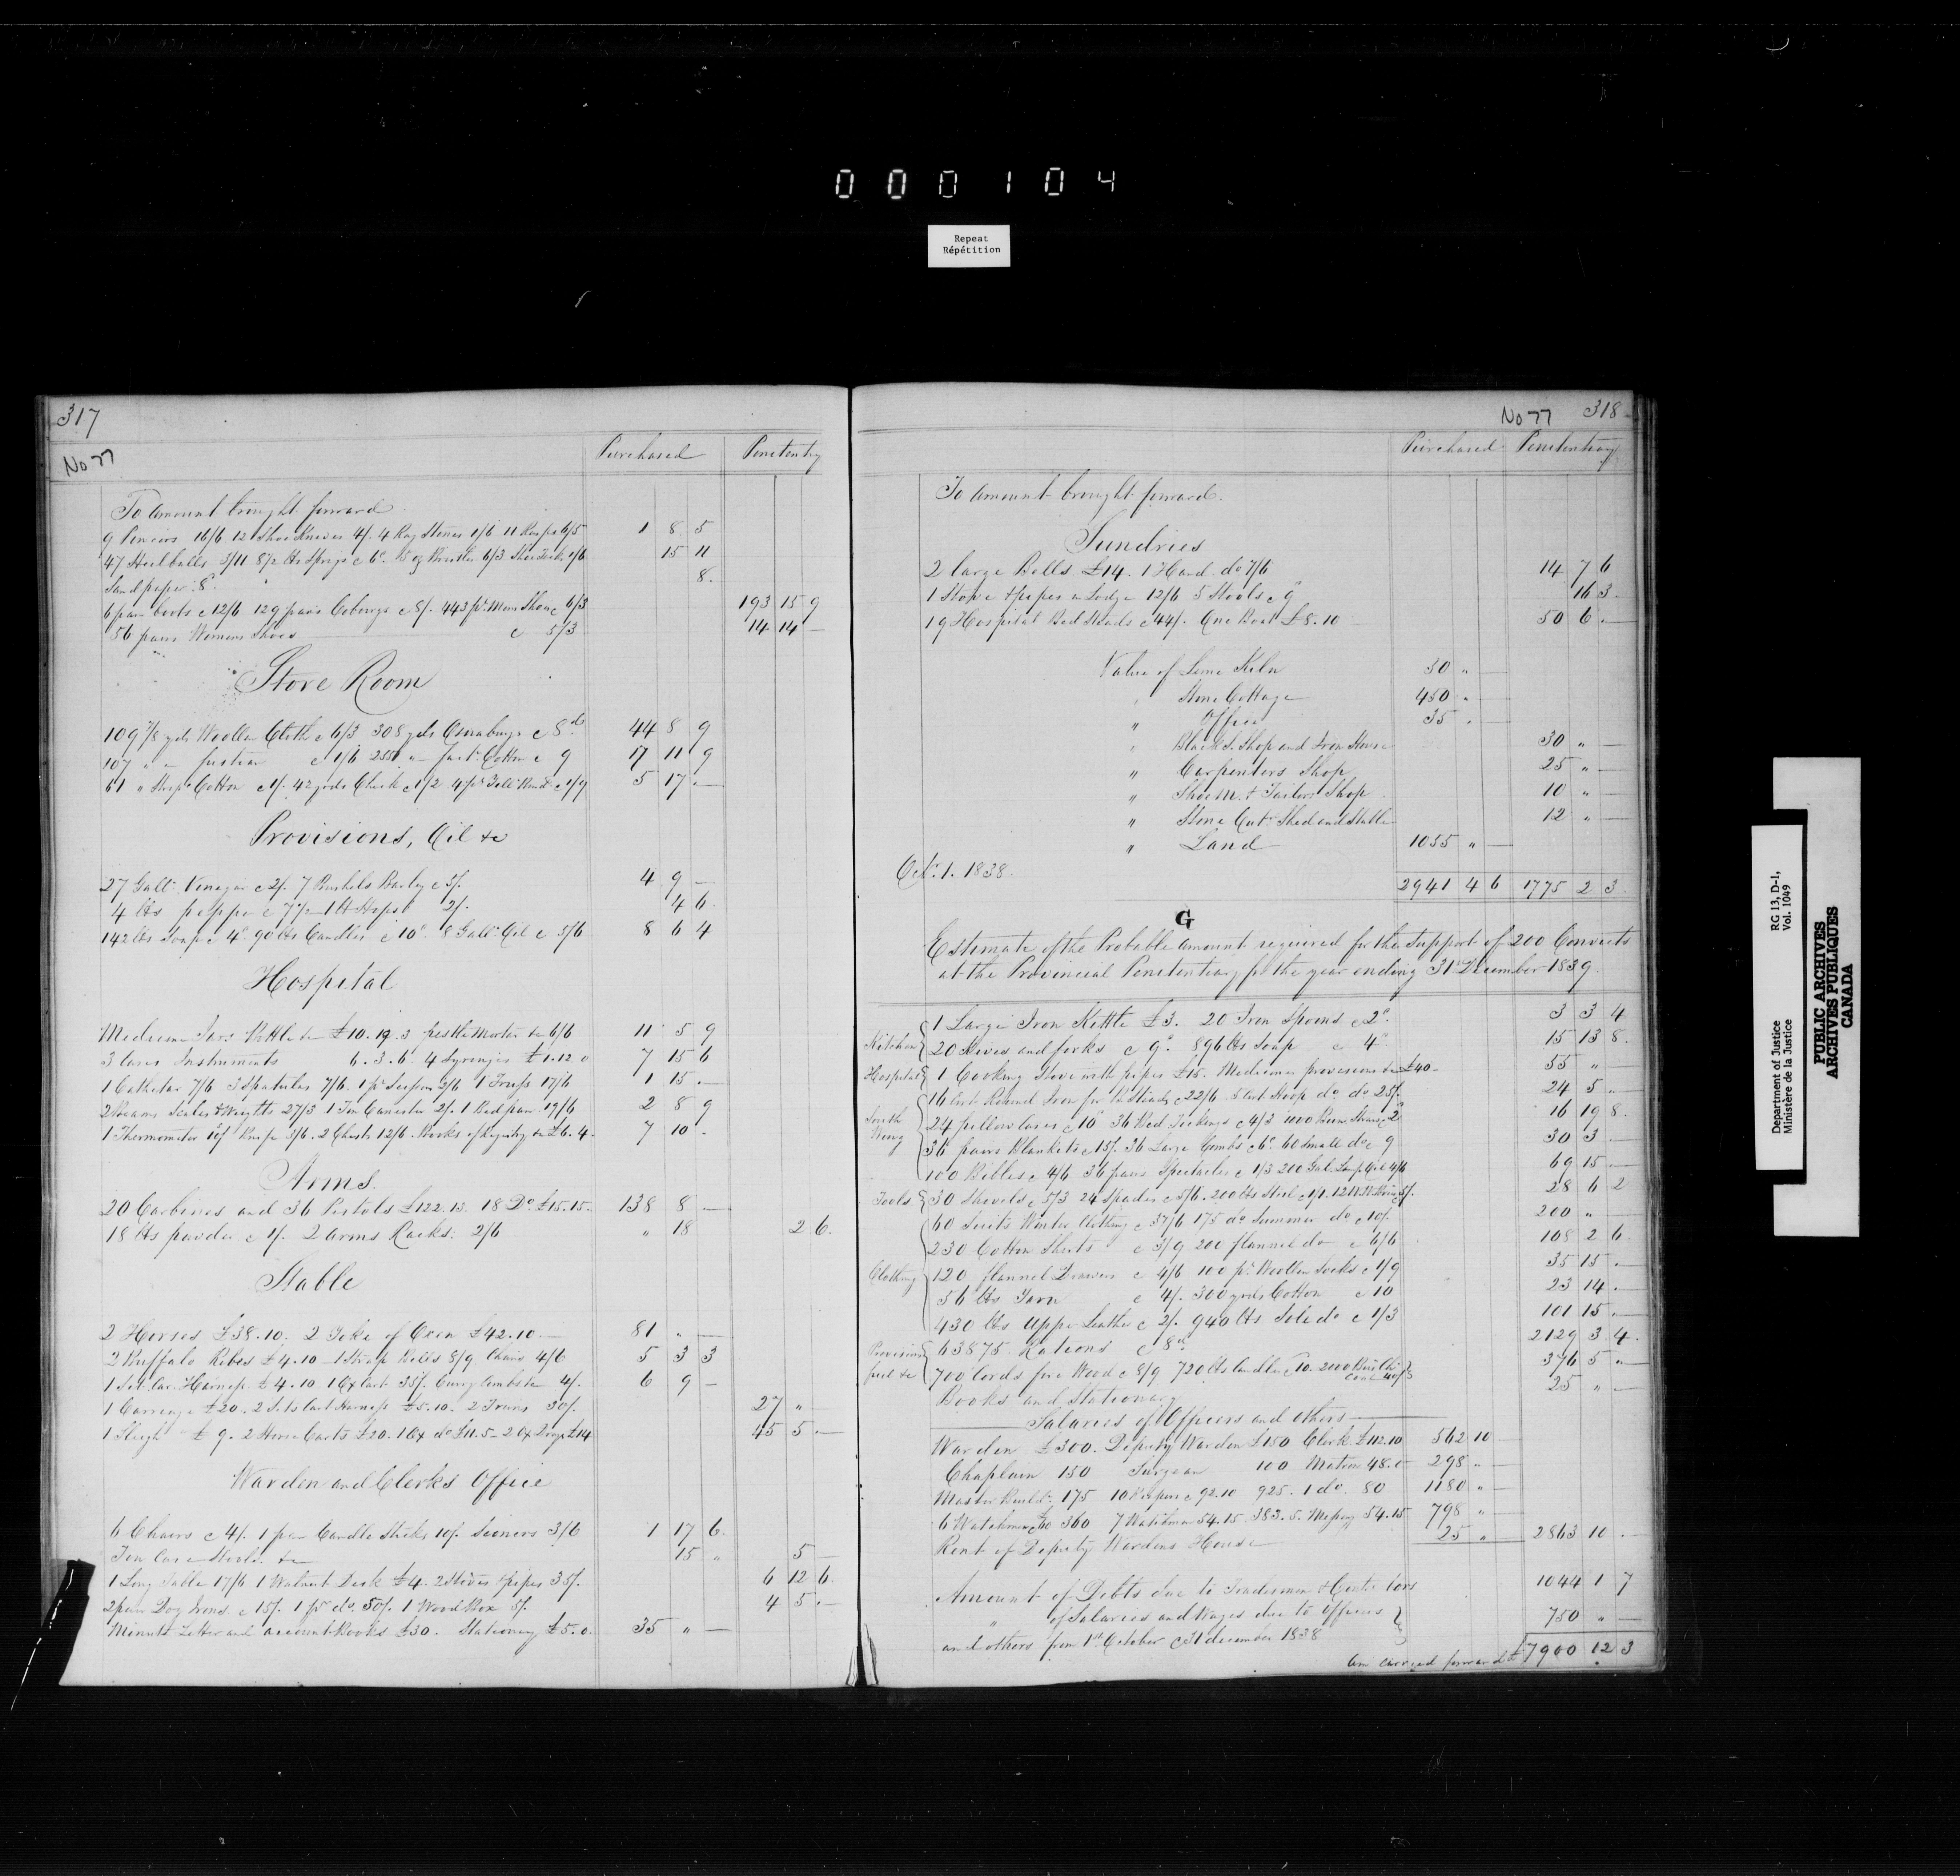 000104
Repeat
Répétition
317
No 77
Purchased Penetentry
To Amount brought forward
9 Pincers 16/6 12 Shoe Knives 4/. 4 Rag Stones 1/6 11 Rasps 6/5 1 8 5
47 Heelballs 3/11 8 1/2 lbs Sprigs c 6d. Bristles 6/3 1/6 15 11
Sand paper 8d. 8.
6 pair boots c 12/6 129 pairs Cobourgs c 8/. 443 pr. Mens Shoes c 6/3 193 15 9
56 pairs Womens Shoes c 5/3 14 14 —
Store Room
109 7/8 yds Woollen Cloth c 6/3 308 yds Osnaburgs c 8d. 44 8 9
107 " " fustian c 1/6 255 " " fact. Cotton c 9 17 11 9
61 " Strip'd Cotton c 1/. 42 yards Check c 1/2 4 pr. c 1/9 5 17 . —
Provisions, Oil &c
27 Galls. Vinegar c 2/. 7 Bushels Barley c 5/. 4 9 —
4 lbs pepper c 7 1/2 — 1 lb Hops 2/. 4 6.
142 lbs Soap c 4d. 90 lbs Candles c 10d. 8 Galls. Oil c 5/6 8 6 4
Hospital
Medicine Jars Bottles &c £10.19.3 pestle Mortar &c 6/6 11 5 9
3 Cases Instruments 6.3.6 4 Syringes £1.12.0 7 15 6
1 Catheter 7/6 3 Spatulas 7/6. 1 pr. 2/6 1 Truss 17/6 1 15 . —
2 Beams Scales & Weights 27/3 1 Tin Canister 2/. 1 Bed pan 19/6 2 8 9
1 Thermometer 10/. 3/6. 2 Chests 12/6. Books of Registry &c £6.4. 7 10 .
Arms.
20 Carbines and 36 Pistols £122.13. 18 Do. £15.15. 138 8 —
18 lbs powder c 1/. 2 Arms Racks: 2/6 " 18 2 6.
Stable
2 Horses £38.10. 2 Yoke of Oxen £42.10. — 81 " —
2 Buffalo Robes £4.10 — 1 Strap Bells 8/9 Chains 4/6 5 3 3
1 Set Car. Harness £4.10 1 Ox Cart 35/. Curry Combs &c 4/. 6 9 —
1 Carriage £20. 2 Sets Cart Harness £5.10. 2 30/. 27 " —
1 Sleigh £9. 2 Horse Carts £20. 1 Ox do £11.5 — 2 Ox Drays £14 45 5 . —
Warden and Clerks Office
6 Chairs c 4/. 1 pair Candle Sticks 10/. Scissors 3/6 1 17 6.
Tin Case &c 15 " 5 —
1 Long Table 17/6 1 Walnut Desk £4. 2 Stoves & pipes 35/. 6 12 6.
2 pair Dog Irons c 15/. 1 pr do. 50/. 1 Wood Box 5/. 4 5 . —
Minute Letter and account Books £30. Stationery £5.0. 35 " —
No 77 318
Purchased Penitentiary
To Amount brought forward.
Sundries
2 large Bells £14. 1 Hand do 7/6 14 7 6
1 Stove & pipes in Lodge 12/6 5 Stools c 9 16 3.
19 Hospital Bed Steads c 44/. One Boat £8.10 50 6 . —
Value of Lime Kiln 30 " —
" Stone Cottage 450 " —
" Office 35 . —
" Black S. Shop and Iron House 30 " —
" Carpenters Shop 25 " —
" Shoe M. & Tailors Shop 10 " —
" Stone Cut. Shed and Stable 12 " —
" Land 1055 " —
Oct. 1. 1838. 2941 4 6 1775 2 3.
G
Estimate of the Probable Amount required for the Support of 200 Convicts
at the Provincial Penitentiary for the year ending 31st December 1839.
Kitchen { 1 Large Iron Kettle £3. 20 Iron Spoons c 2d. 3 3 4
20 Knives and forks c 9d. 896 lbs Soap c 4d. 15 13 8.
Hospital { 1 Cooking Stove with pipes £15. Medicines provisions &c £40 — 55 " —
South Wing { 16 Iron for Bd Steads c 22/6 5 Hoop do do 25/. 24 5 . —
24 pillow Cases c 10d 36 Bed Tickings c 4/3 1000 Straw c 2 16 19 8.
36 pairs Blankets c 15/. 36 Large Combs c 6d. 60 Small do c 9 30 3 —
100 Bibles c 4/6 36 pairs Spectacles c 1/3 200 Gal. Lamp Oil 4/6 69 15 . —
Tools { 30 Shovels c 5/3 24 Spades c 5/6. 200 lbs Steel c 1/1. 5/. 28 6 2
Clothing { 60 Suits Winter Clothing c 37/6 175 do Summer do c 10/. 200 " —
230 Cotton Shirts c 3/9 200 flannel do c 6/6 108 2 6.
120 flannel Drawers c 4/6 100 pr. Woollen Socks c 1/9 35 15 . —
56 lbs Yarn c 4/. 300 yards Cotton c 10 23 14 . —
430 lbs Upper Leather c 2/. 940 lbs Sole do c 1/3 101 15 . —
Provisions fuel &c { 63875. Rations c 8d. 2129 3 4.
700 Cords fire Wood c 8/9 720 lbs Candles c 10. 2000 Bus. Ch. Coal 40/. 376 5 " —
Books and Stationary 25 " —
Salaries of Officers and others
Warden £300. Deputy Warden £150 Clerk £112.10 562 10 —
Chaplain 150 Surgeon 100 Matron 48.0 298 " —
Master Build. 175 10 Keepers c 92.10 925. 1 do. 80 1180 " —
6 Watchmen £60 360 7 Watchmen 54.15. 383.5. Messeng 54.15 798 " —
Rent of Deputy Wardens House 25 " — 2863 10 . —
Amount of Debts due to Tradesmen & Contractors 1044 1 7
" of Salaries and Wages due to Officers 750 " —
and others from 1st. October c 31 december 1838
Am carried forward £ 7900 12 3
Department of Justice
Ministère de la Justice
RG 13, D-1,
Vol. 1049
PUBLIC ARCHIVES
ARCHIVES PUBLIQUES
CANADA